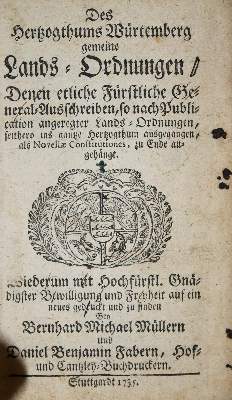 Des
Hertzogthums Würtemberg
gemeine
Lands-Ordnungen/
Denen etliche Fürstliche Ge-
neral-Ausschreiben, so nach Publi-
cation angeregter Lands-Ordnungen,
seithero ins gantze Hertzogthum ausgegangen,
als Novellæ Constitutiones, zu Ende an-
gehängt.
Wiederum mit Hochfürstl. Gnä-
digster Bewilligung und Freyheit auf ein
neues gedruckt und zu finden
Bey
Bernhard Michael Müllern
und
Daniel Benjamin Fabern, Hof-
und Cantzley-Buchdruckern.
Stuttgardt 1735.